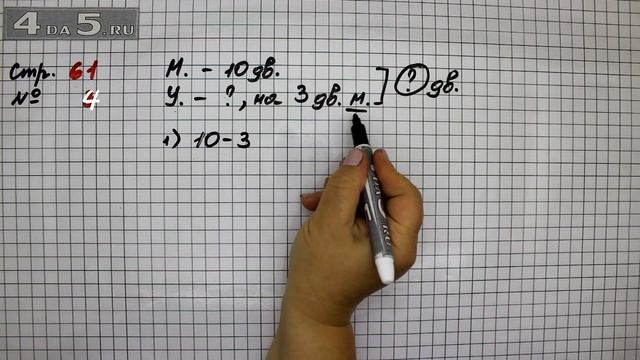 4DA5.RU
Стр. 61
М. - 10 дв.
№ 4
У. - ?, на 3 дв. м. ] ? дв.
1) 10-3